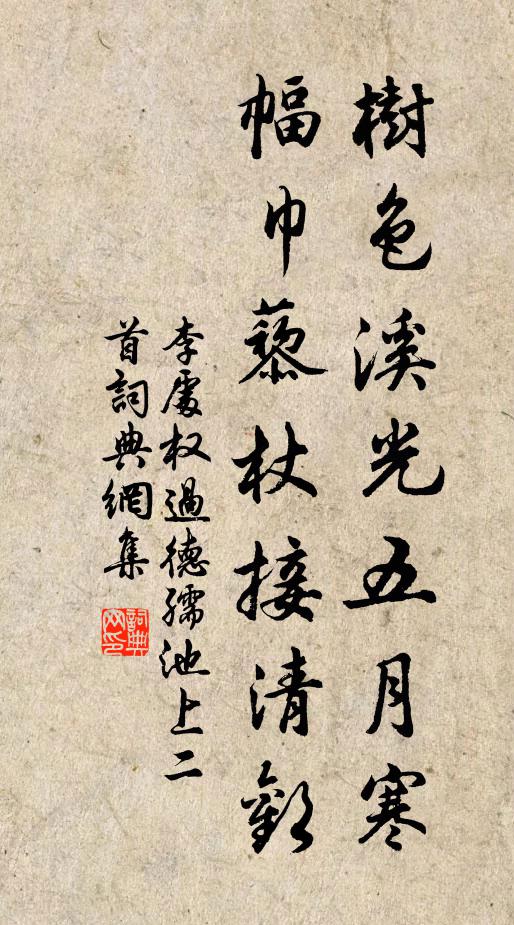 樹色溪光五月寒
幅巾藜杖接清歡
李處权過德孺池上二
首詞典網集
詞典
网印